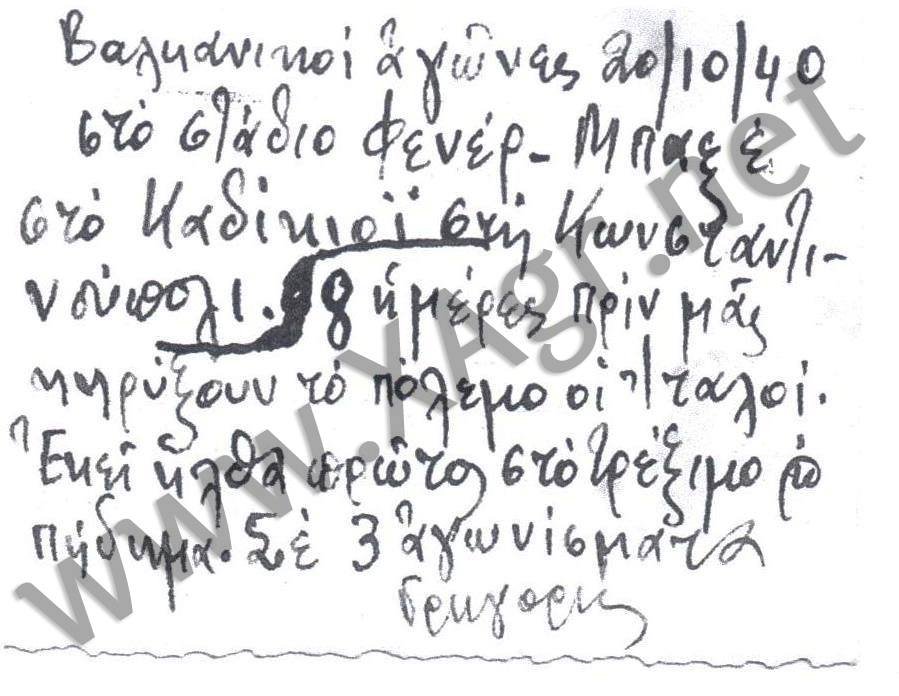 Βαλκανικοί ἀγῶνες 20/10/40
στό στάδιο Φενέρ-Μπαξέ
στό Καδίκιοϊ στή Κωνσταντι-
νούπολι. 8 ἡμέρες πρίν μᾶς
κηρύξουν τό πόλεμο οἱ Ἰταλοί.
Ἐκεῖ ἦλθα πρῶτος στό τρέξιμο
πήδημα. Σέ 3 ἀγωνίσματα
Γρηγόρης
www.XAgr.net